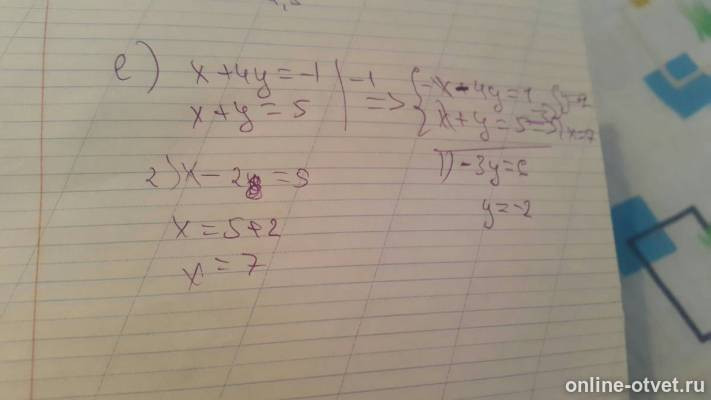 e) x+4y=-1 | -1
x+y=5 => { -x-4y=1 { y=-2
x+y=5 x=7
1) -3y=6
y=-2
2) x-2=5
x=5+2
x=7
online-otvet.ru